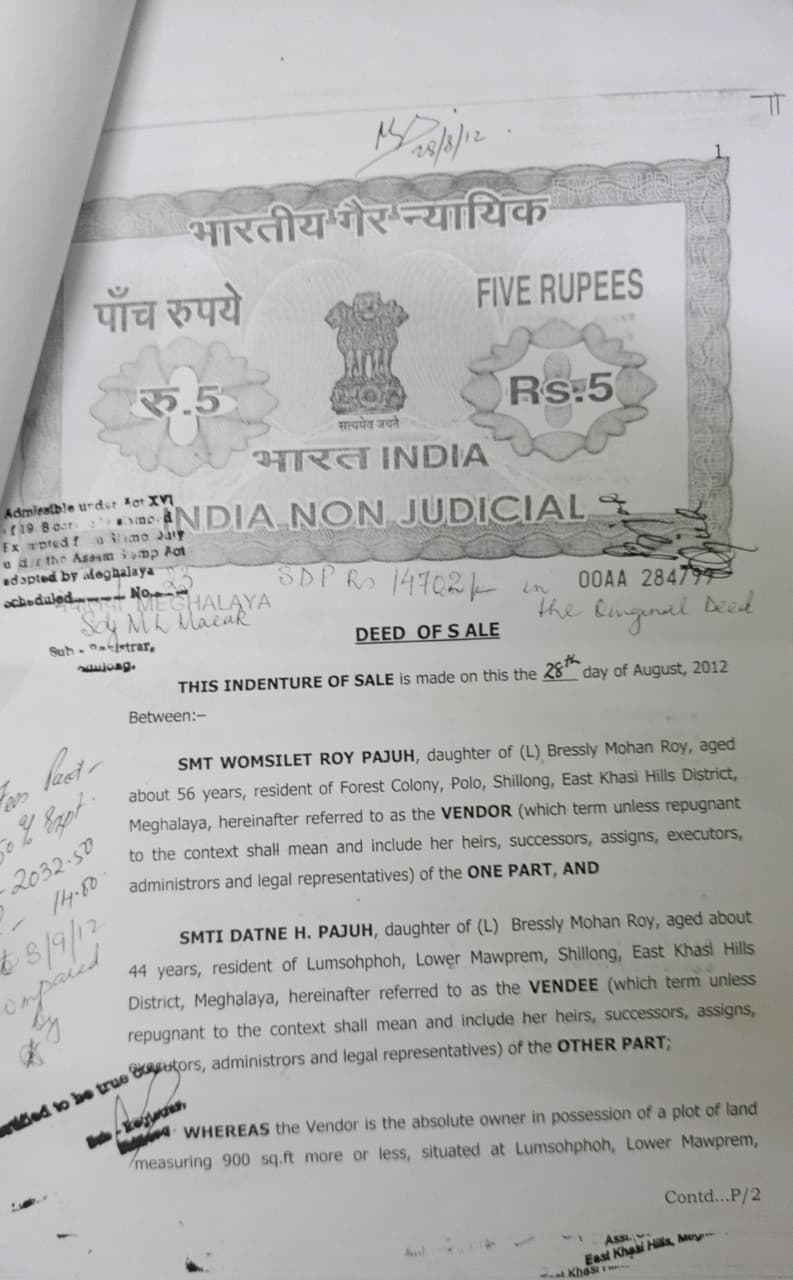 28/8/12
1
भारतीय गैर न्यायिक
पाँच रुपये
FIVE RUPEES
रु.5
Rs.5
सत्यमेव जयते
भारत INDIA
INDIA NON JUDICIAL
Admissible under
the Assam Stamp Act
adopted by Meghalaya
No. 23
MEGHALAYA
SDP Rs 14702/- in
00AA 284799
the Original Deed
DEED OF S ALE
THIS INDENTURE OF SALE is made on this the 28th day of August, 2012
Between:–
SMT WOMSILET ROY PAJUH, daughter of (L) Bressly Mohan Roy, aged
about 56 years, resident of Forest Colony, Polo, Shillong, East Khasi Hills District,
Meghalaya, hereinafter referred to as the VENDOR (which term unless repugnant
to the context shall mean and include her heirs, successors, assigns, executors,
administrors and legal representatives) of the ONE PART, AND
2032.50
14.80
8/9/12
compared
by
SMTI DATNE H. PAJUH, daughter of (L) Bressly Mohan Roy, aged about
44 years, resident of Lumsohphoh, Lower Mawprem, Shillong, East Khasi Hills
District, Meghalaya, hereinafter referred to as the VENDEE (which term unless
repugnant to the context shall mean and include her heirs, successors, assigns,
executors, administrors and legal representatives) of the OTHER PART;
to be true
WHEREAS the Vendor is the absolute owner in possession of a plot of land
measuring 900 sq.ft more or less, situated at Lumsohphoh, Lower Mawprem,
Contd...P/2
East Khasi Hills,